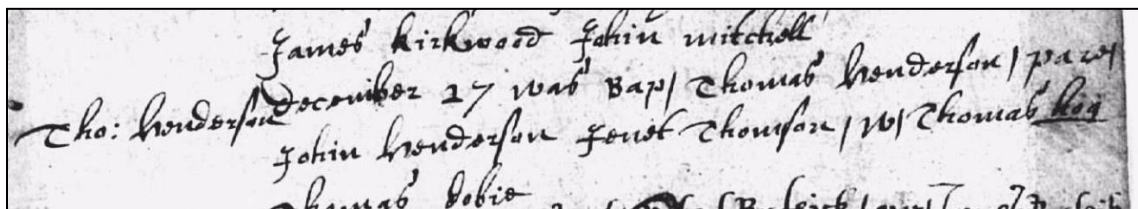 James Kirkwood John mitchell
Tho: Henderson December 17 was Bap/ Thomas Henderson / pare/
John Henderson Jenet Thomson / W/ Thomas hog
Thomas dobie